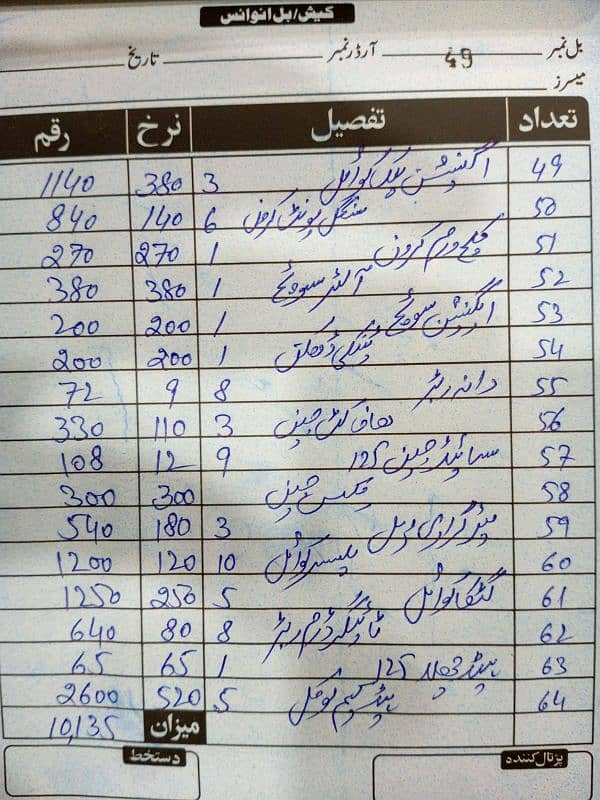 کیش/بل انوائس
بل نمبر 49 آرڈر نمبر تاریخ
میسرز
تعداد تفصیل نرخ رقم
49 اگنیشن کوائل 3 380 1140
50 سنگل پوائنٹ 6 140 840
51 کلچ ورم کرون 1 270 270
52 سوئچ 1 380 380
53 اگنیشن سوئچ 1 200 200
54 1 200 200
55 دانہ ربڑ 8 9 72
56 ہاف کٹ چین 3 110 330
57 سائیڈ چین 125 9 12 108
58 چین 300 300
59 میٹر گراری 3 180 540
60 پلسر کوائل 10 120 1200
61 کوائل 5 250 1250
62 ڈرم ربڑ 8 80 640
63 ہیڈ 125 1 65 65
64 ہیڈ 5 520 2600
میزان 10,135
پڑتال کنندہ دستخط